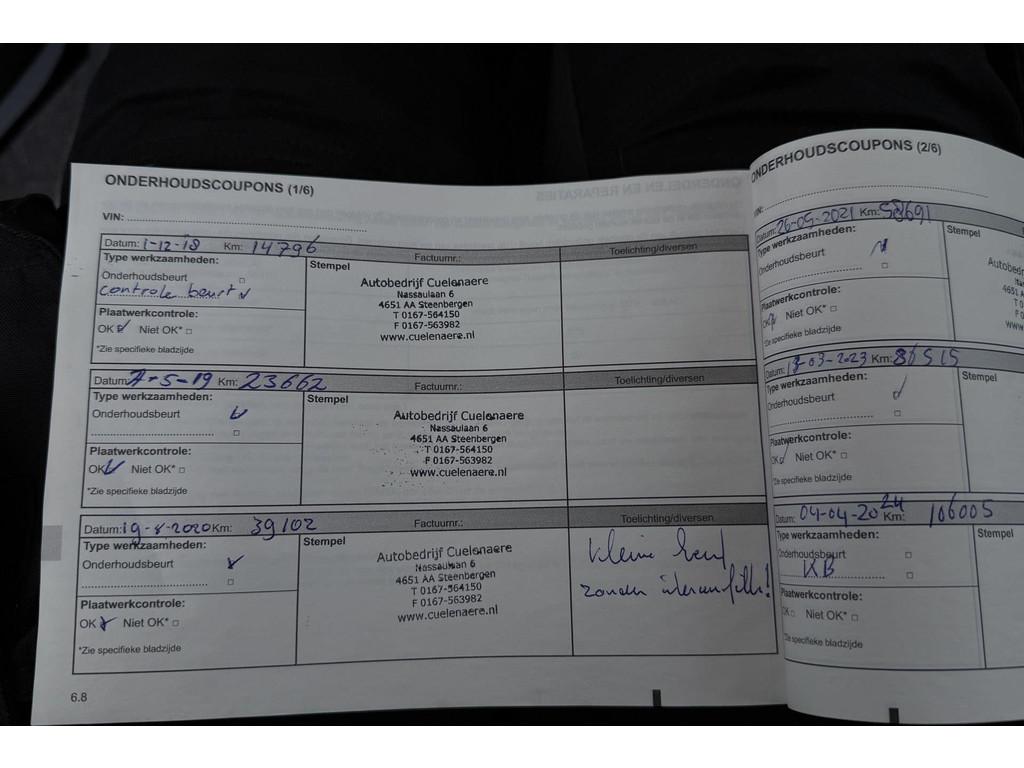 ONDERHOUDSCOUPONS (1/6)
VIN:
Datum: 1-12-18 Km: 14796 Factuurnr.: Toelichting/diversen
Type werkzaamheden: Stempel
Onderhoudsbeurt
controle beurt
Plaatwerkcontrole:
OK Niet OK*
*Zie specifieke bladzijde
Autobedrijf Cuelenaere
Nassaulaan 6
4651 AA Steenbergen
T 0167-564150
F 0167-563982
www.cuelenaere.nl
Datum: 7-5-19 Km: 23662 Factuurnr.: Toelichting/diversen
Type werkzaamheden: Stempel
Onderhoudsbeurt
Plaatwerkcontrole:
OK Niet OK*
*Zie specifieke bladzijde
Autobedrijf Cuelenaere
Nassaulaan 6
4651 AA Steenbergen
T 0167-564150
F 0167-563982
www.cuelenaere.nl
Datum: 19-8-2020 Km: 39102 Factuurnr.: Toelichting/diversen
Type werkzaamheden: Stempel
Onderhoudsbeurt
Plaatwerkcontrole:
OK Niet OK*
*Zie specifieke bladzijde
Autobedrijf Cuelenaere
Nassaulaan 6
4651 AA Steenbergen
T 0167-564150
F 0167-563982
www.cuelenaere.nl
kleine beurt
zonder
6.8
ONDERHOUDSCOUPONS (2/6)
VIN:
Datum: 26-05-2021 Km: 58691
Type werkzaamheden: Stempel
Onderhoudsbeurt
Plaatwerkcontrole:
OK Niet OK*
*Zie specifieke bladzijde
Datum: 13-03-2023 Km: 86515
Type werkzaamheden: Stempel
Onderhoudsbeurt
Plaatwerkcontrole:
OK Niet OK*
*Zie specifieke bladzijde
Datum: 04-04-2024 Km: 106005
Type werkzaamheden: Stempel
Onderhoudsbeurt
KB
Plaatwerkcontrole:
OK Niet OK*
*Zie specifieke bladzijde